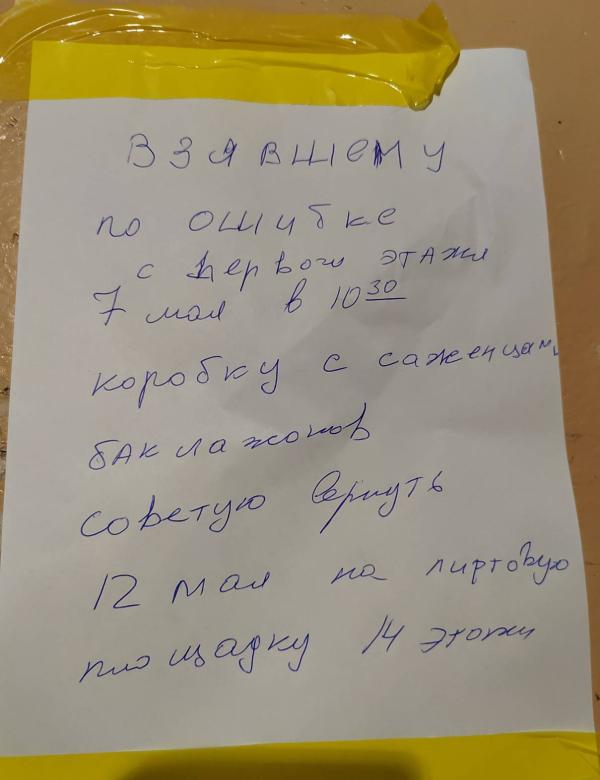 ВЗЯВШЕМУ
по ошибке
с первого этажа
7 мая в 10 30
коробку с саженцами
баклажонов
советую вернуть
12 мая на лифтовую
площадку 14 этажа